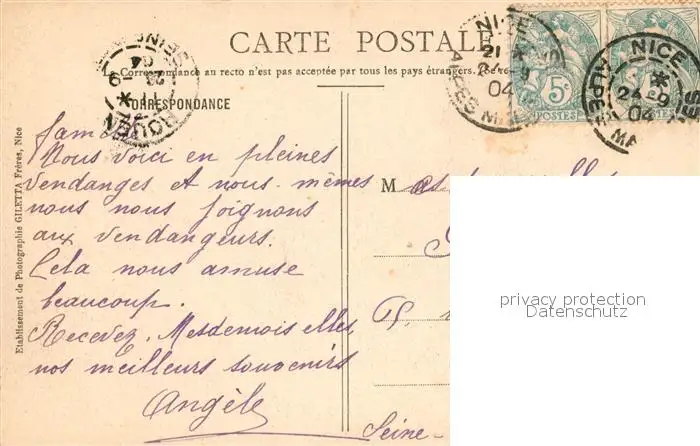 CARTE POSTALE
La Correspondance au recto n'est pas acceptée par tous les pays étrangers. (Se re
CORRESPONDANCE
NICE
21
24-9
04
ALPES M
5c
POSTES
NICE
24-9
04
ALPES MA
Nous voici en pleines
vendanges et nous-mêmes
nous nous joignons
aux vendangeurs.
Cela nous amuse
beaucoup.
Recevez, Mesdemoiselles,
nos meilleurs souvenirs
Angèle
M
Seine-
Etablissement de Photographie GILETTA Frères, Nice
privacy protection
Datenschutz